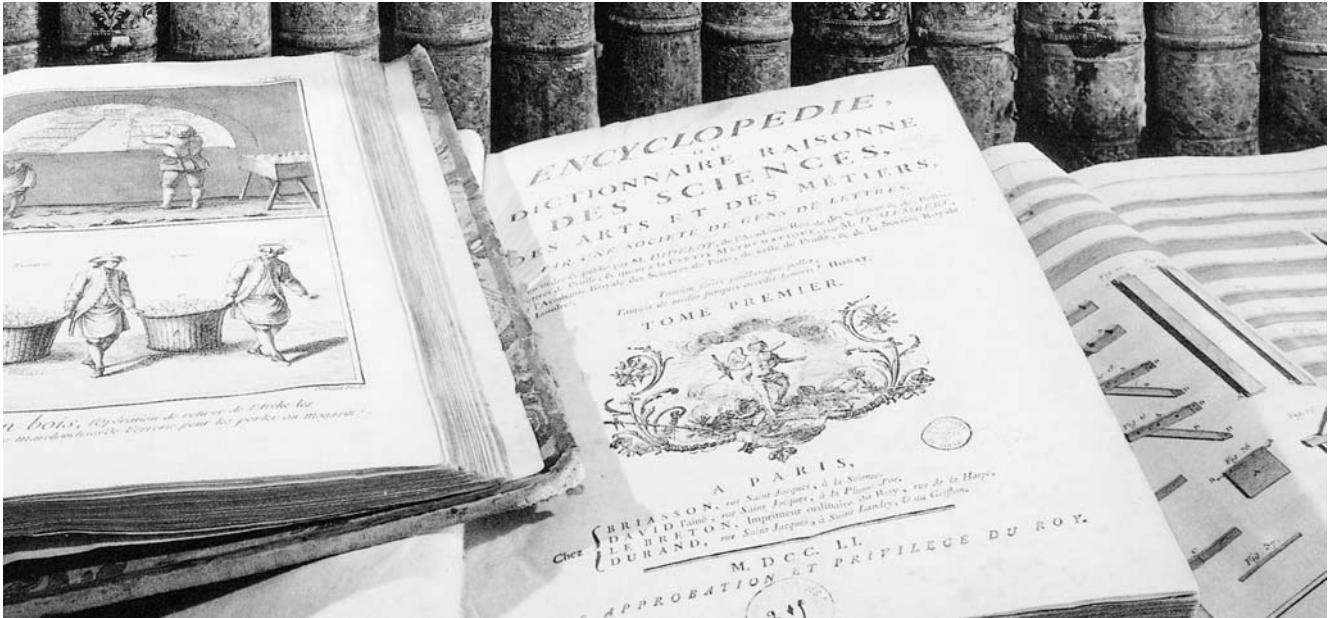 n bois, l'opération de retirer de l'Arche les
marchandises de pour les porter au magasin.
ENCYCLOPÉDIE,
OU
DICTIONNAIRE RAISONNÉ
DES SCIENCES,
DES ARTS ET DES MÉTIERS,
PAR UNE SOCIÉTÉ DE GENS DE LETTRES.
& publié par M. DIDEROT, de l'Académie Royale des Sciences & des Belles-
de Prusse; & quant à la PARTIE MATHÉMATIQUE, par M. D'ALEMBERT,
l'Académie Royale des Sciences de Paris, de celle de Prusse, & de la Société Royale
Londres.
Tantùm series juncturaque pollet,
Tantùm de medio sumptis accedit honoris! HORAT.
TOME PREMIER.
A PARIS,
Chez
BRIASSON, rue Saint Jacques, à la Science.
DAVID l'aîné, rue Saint Jacques, à la Plume d'or.
LE BRETON, Imprimeur ordinaire du Roy, rue de la Harpe.
DURAND, rue Saint Jacques, à Saint Landry, & au Griffon.
M. DCC. LI.
APPROBATION ET PRIVILEGE DU ROY.
Fig. 26
Fig. 27.